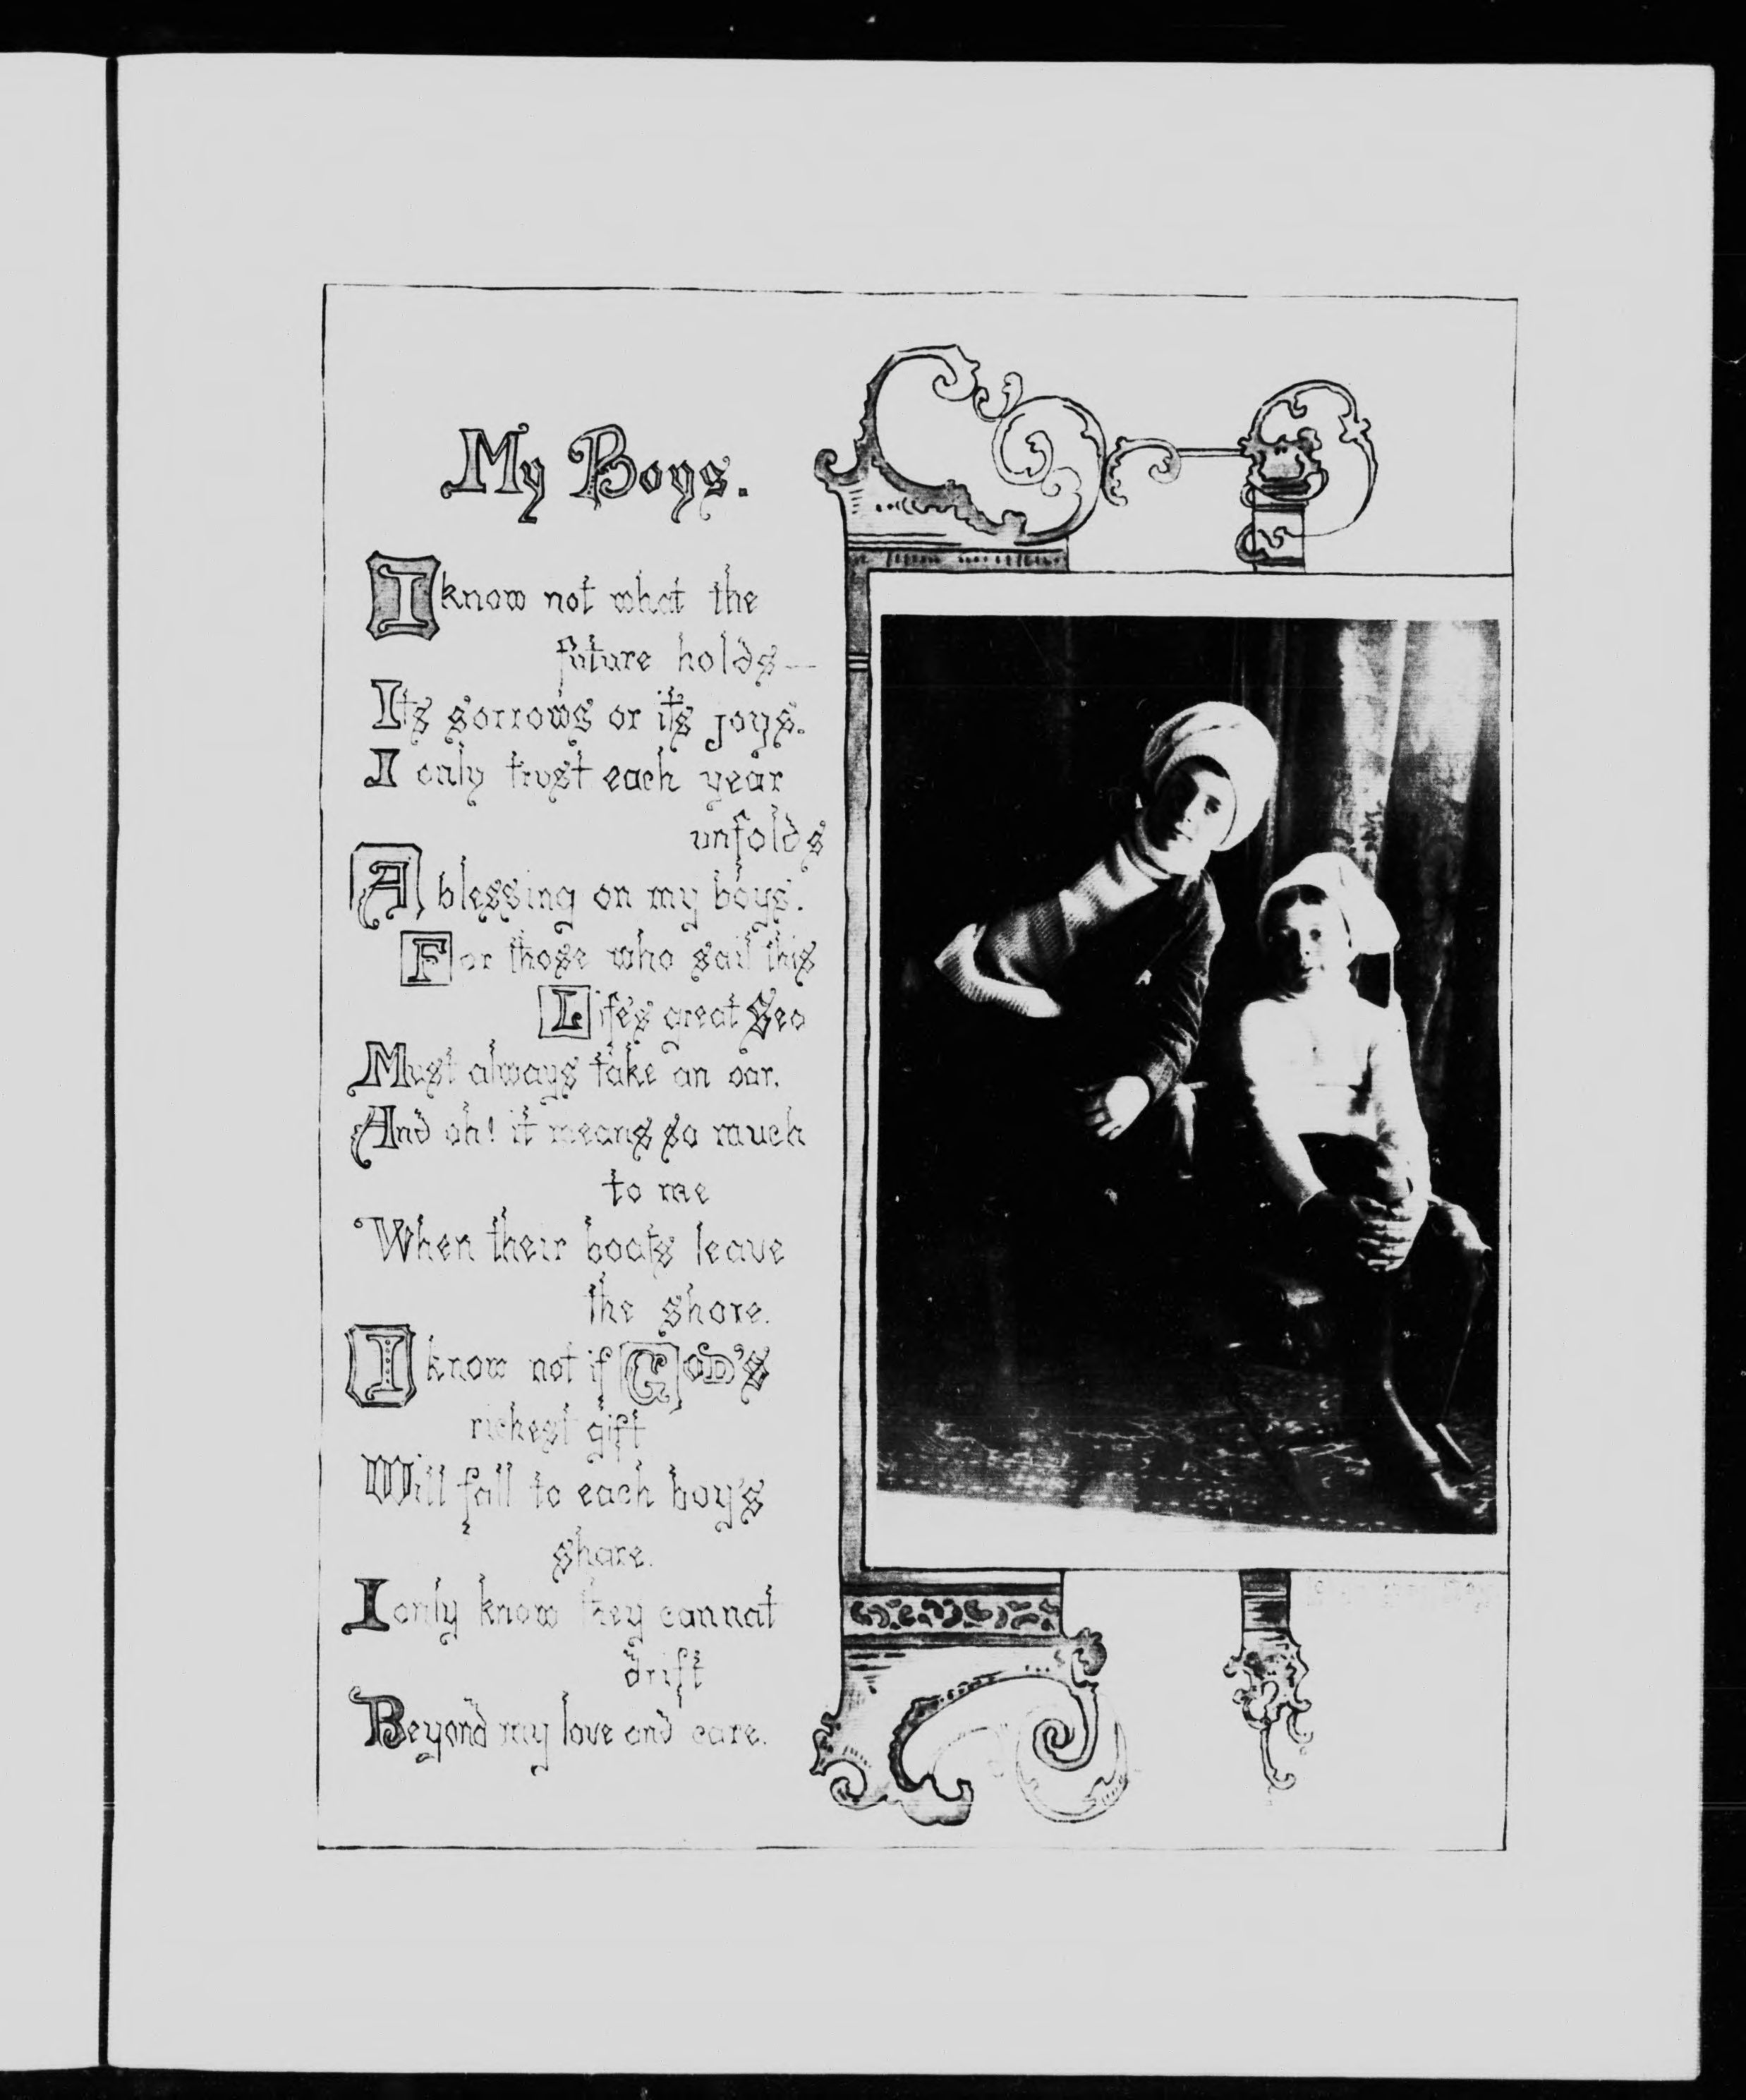 My Boys.
I know not what the
future holds—
Its sorrows or its joys.
I only trust each year
unfolds
A blessing on my boys.
For those who sail this
Life's great Sea
Must always take an oar.
And oh! it means so much
to me
When their boats leave
the shore.
I know not if GOD'S
richest gift
Will fall to each boy's
share.
I only know they cannot
drift
Beyond my love and care.